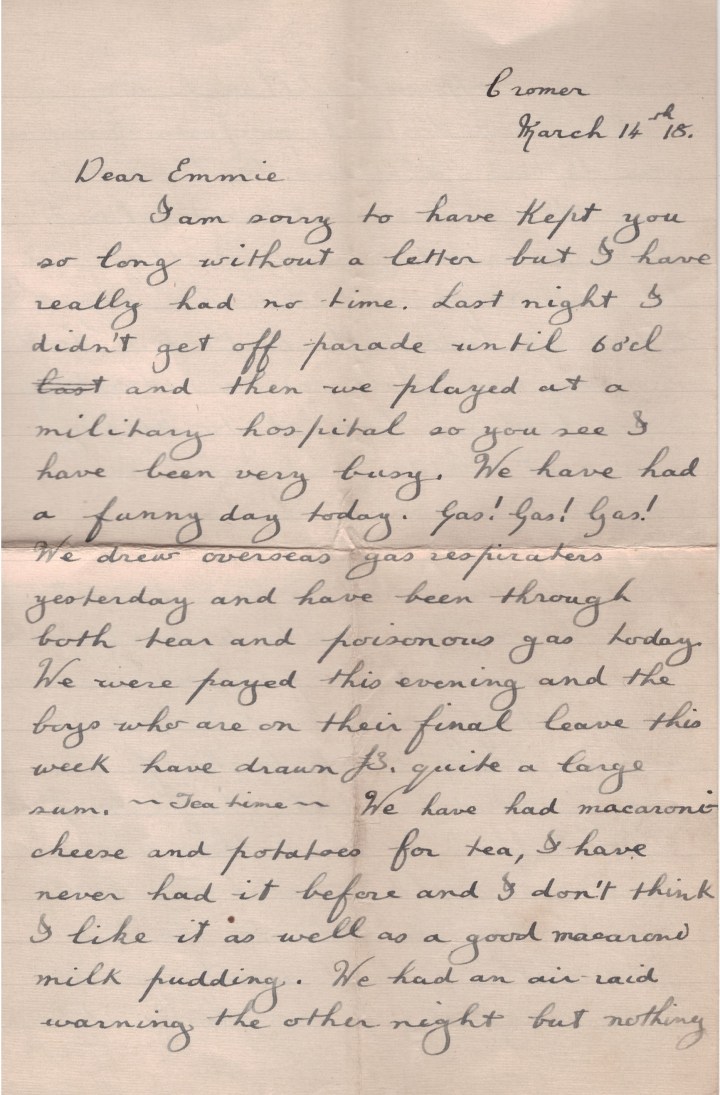 Cromer
March 14th 18.
Dear Emmie
I am sorry to have kept you
so long without a letter but I have
really had no time. Last night I
didn't get off parade until 6 o'cl
last and then we played at a
military hospital so you see I
have been very busy. We have had
a funny day today. Gas! Gas! Gas!
We drew overseas gas respiraters
yesterday and have been through
both tear and poisonous gas today.
We were payed this evening and the
boys who are on their final leave this
week have drawn £3. quite a large
sum. ~ Tea time ~ We have had macaroni
cheese and potatoes for tea, I have
never had it before and I don't think
I like it as well as a good macaroni
milk pudding. We had an air-raid
warning the other night but nothing